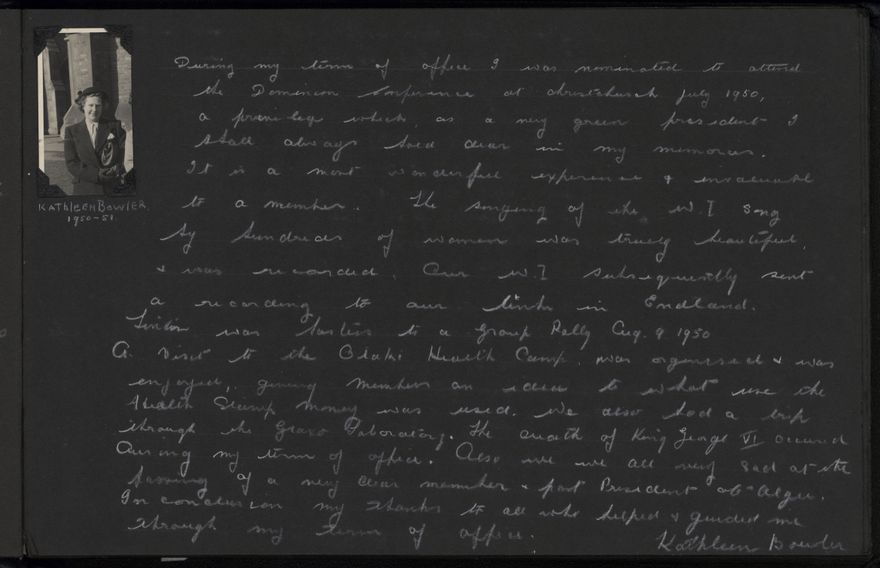 KATHLEEN BOWLER.
1950-51.
During my term of office I was nominated to attend
the Dominion Conference at Christchurch July 1950,
a privilege which, as a very green president I
shall always hold dear in my memories.
It is a most wonderful experience & invaluable
to a member. The singing of the W.I song
by hundreds of women was truely beautiful,
& was recorded. Our W.I subsequently sent
a recording to our links in England.
Linton was hostess to a Group Rally Aug. 9 1950
A visit to the Otaki Health Camp. was organised & was
enjoyed, giving members an idea to what use the
Health Stamp money was used. We also had a trip
through the Glaxo Laboratory. The death of King George VI occured
during my term of office. Also we were all very sad at the
passing of a very dear member & past President
In conclusion my thanks to all who helped & guided me
through my term of office.
Kathleen Bowler